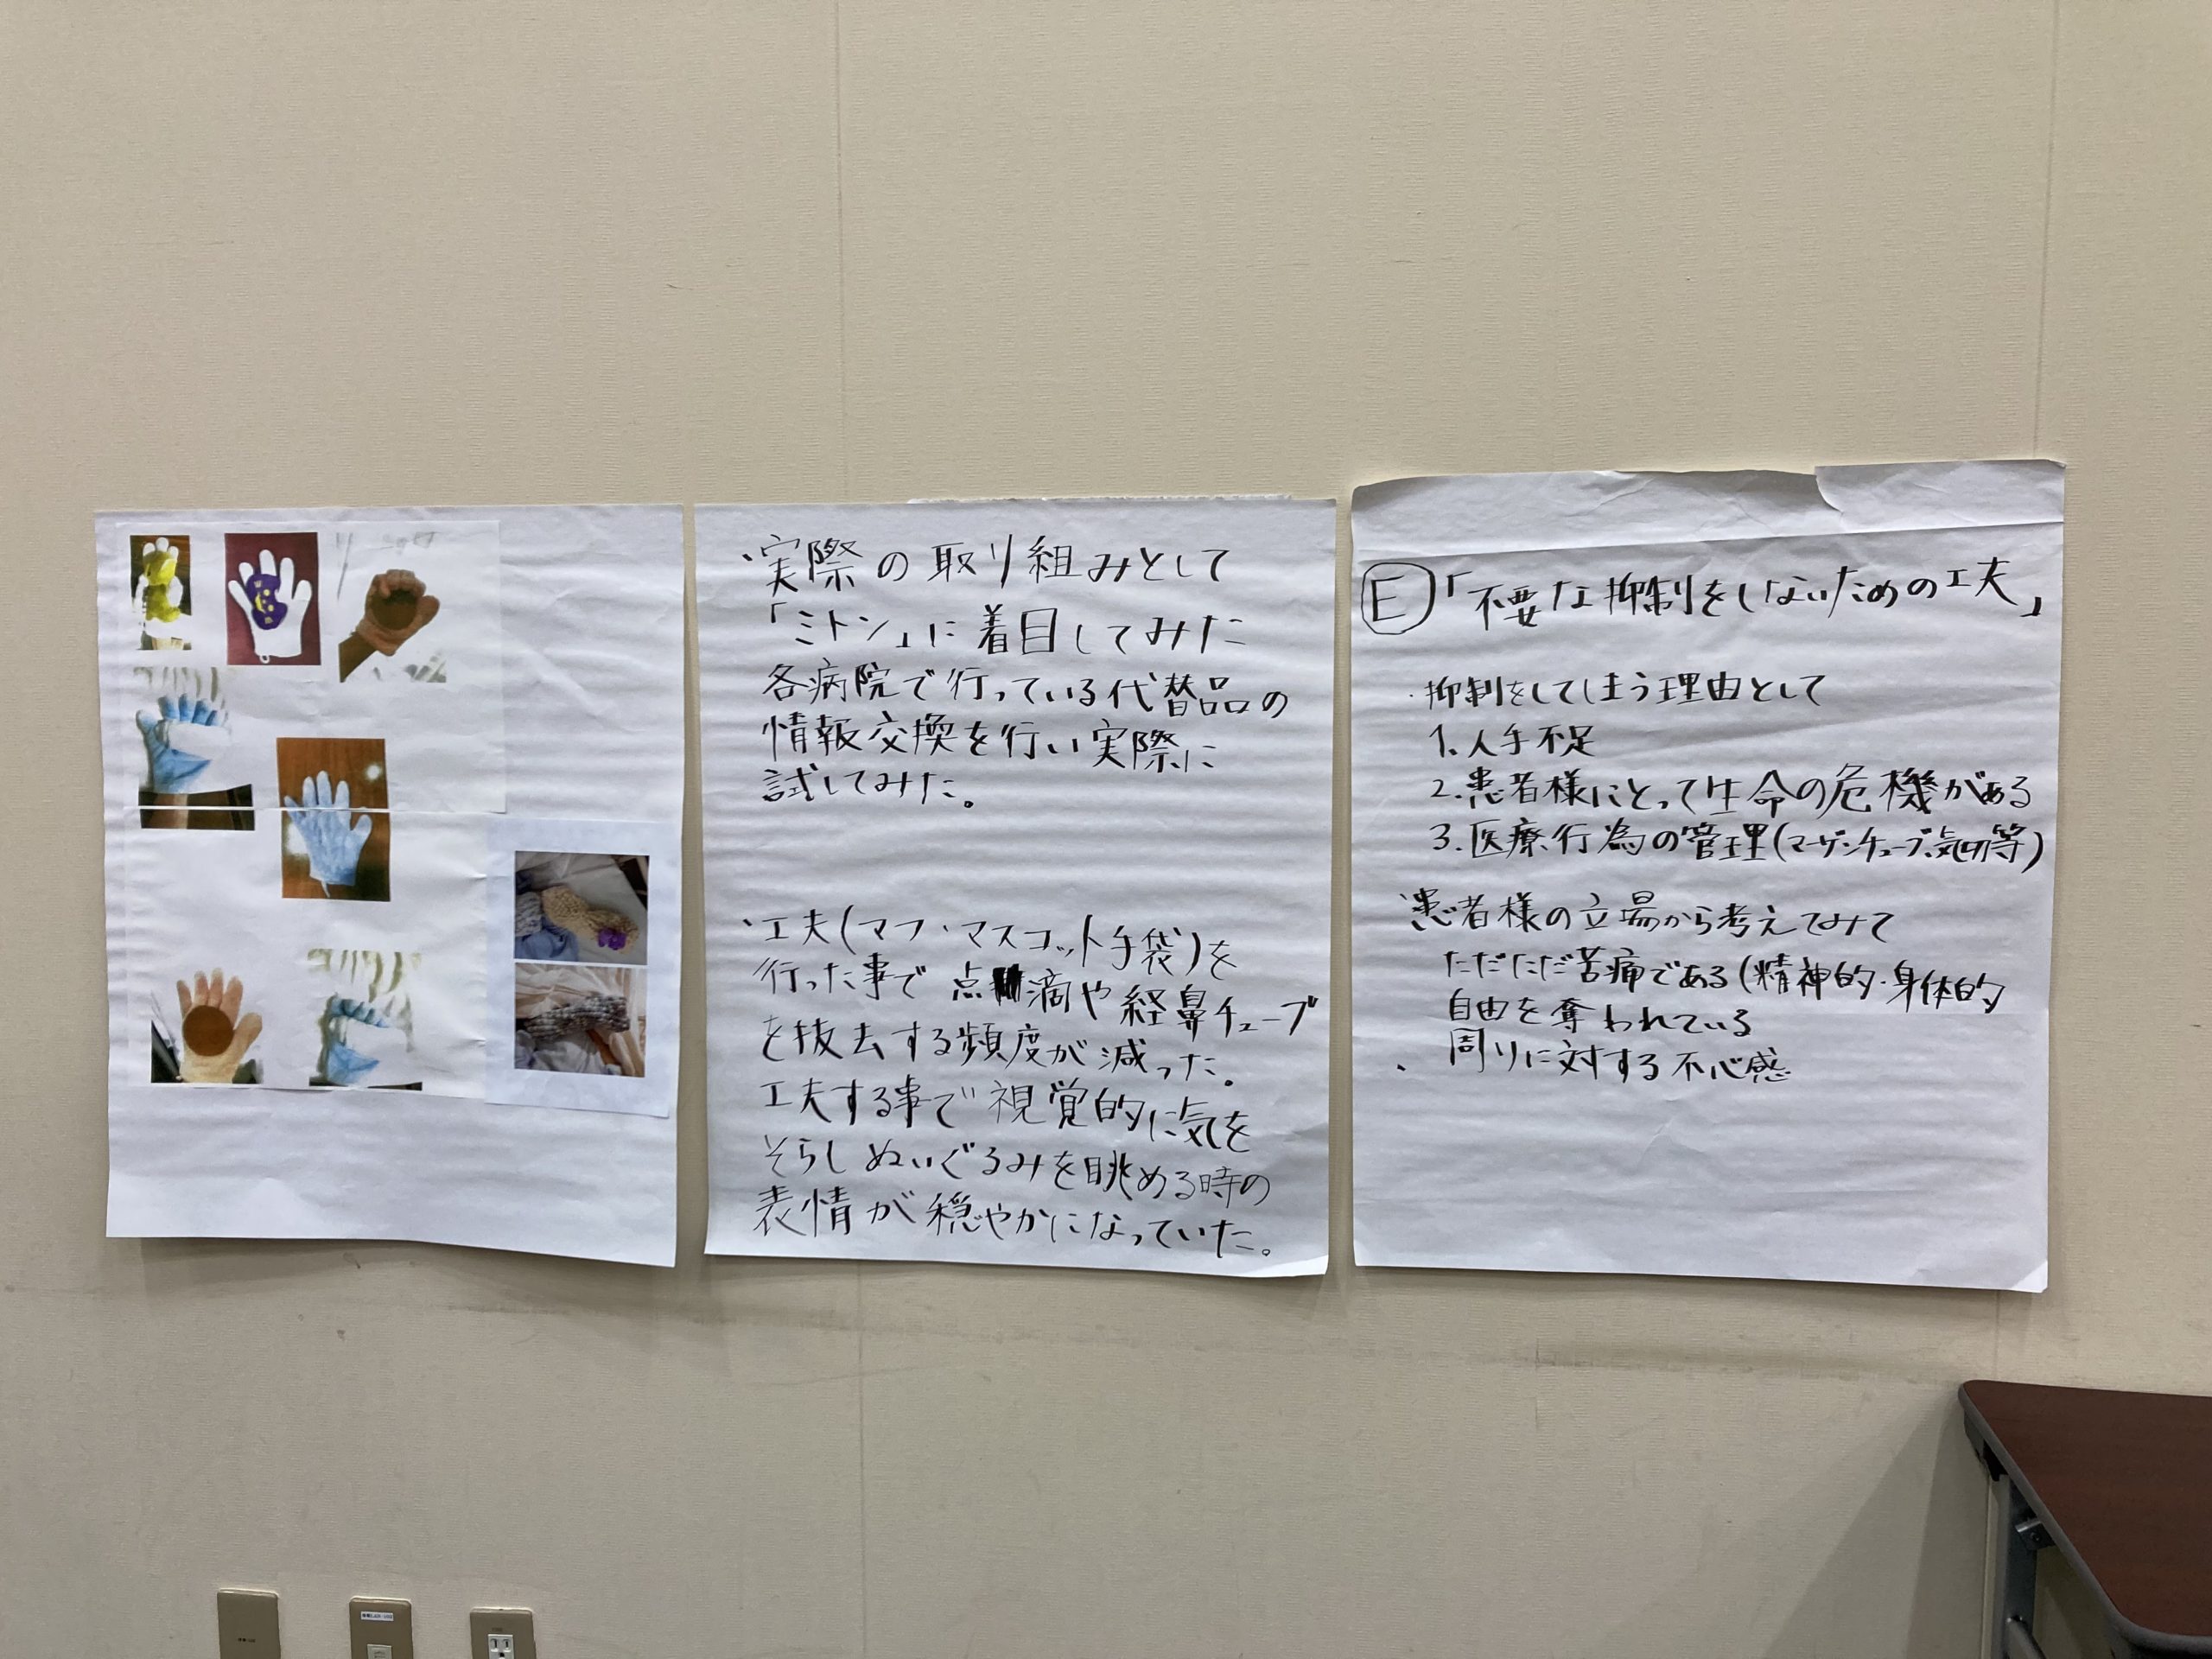 Ⓔ「不要な抑制をしないための工夫」
・抑制をしてしまう理由として
1.人手不足
2.患者様にとって生命の危機がある
3.医療行為の管理(マーゲンチューブ、気切等)
・患者様の立場から考えてみて
ただただ苦痛である(精神的・身体的
自由を奪われている
周りに対する不心感
・実際の取り組みとして
「ミトン」に着目してみた
各病院で行っている代替品の
情報交換を行い実際に
試してみた。
・工夫(マフ・マスコット手袋)を
行った事で点滴や経鼻チューブ
を抜去する頻度が減った。
工夫する事で視覚的に気を
そらしぬいぐるみを眺める時の
表情が穏やかになっていた。